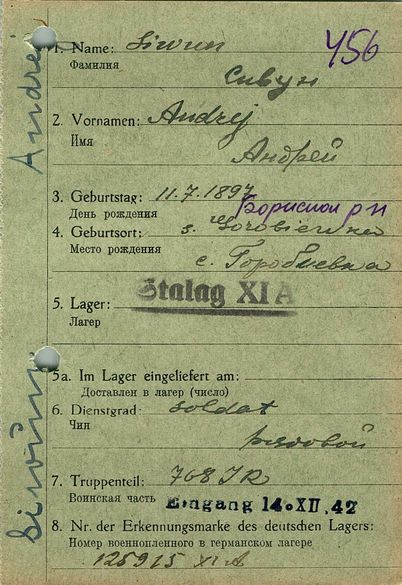 456
1. Name: Siwun
Фамилия
Сивун
2. Vornamen: Andrej
Имя
Андрей
3. Geburtstag: 11.7.1897
День рождения
4. Geburtsort: s.
Место рождения
с. Горобиевка
Stalag XI A
5. Lager:
Лагер
5a. Im Lager eingeliefert am:
Доставлен в лагер (число)
6. Dienstgrad: soldat
Чин
рядовой
7. Truppenteil: 768 IR
Воинская часть
Eingang 14. XII. 42
8. Nr. der Erkennungsmarke des deutschen Lagers:
Номер военнопленного в германском лагере
125915 XI A
Andrej
Siwun